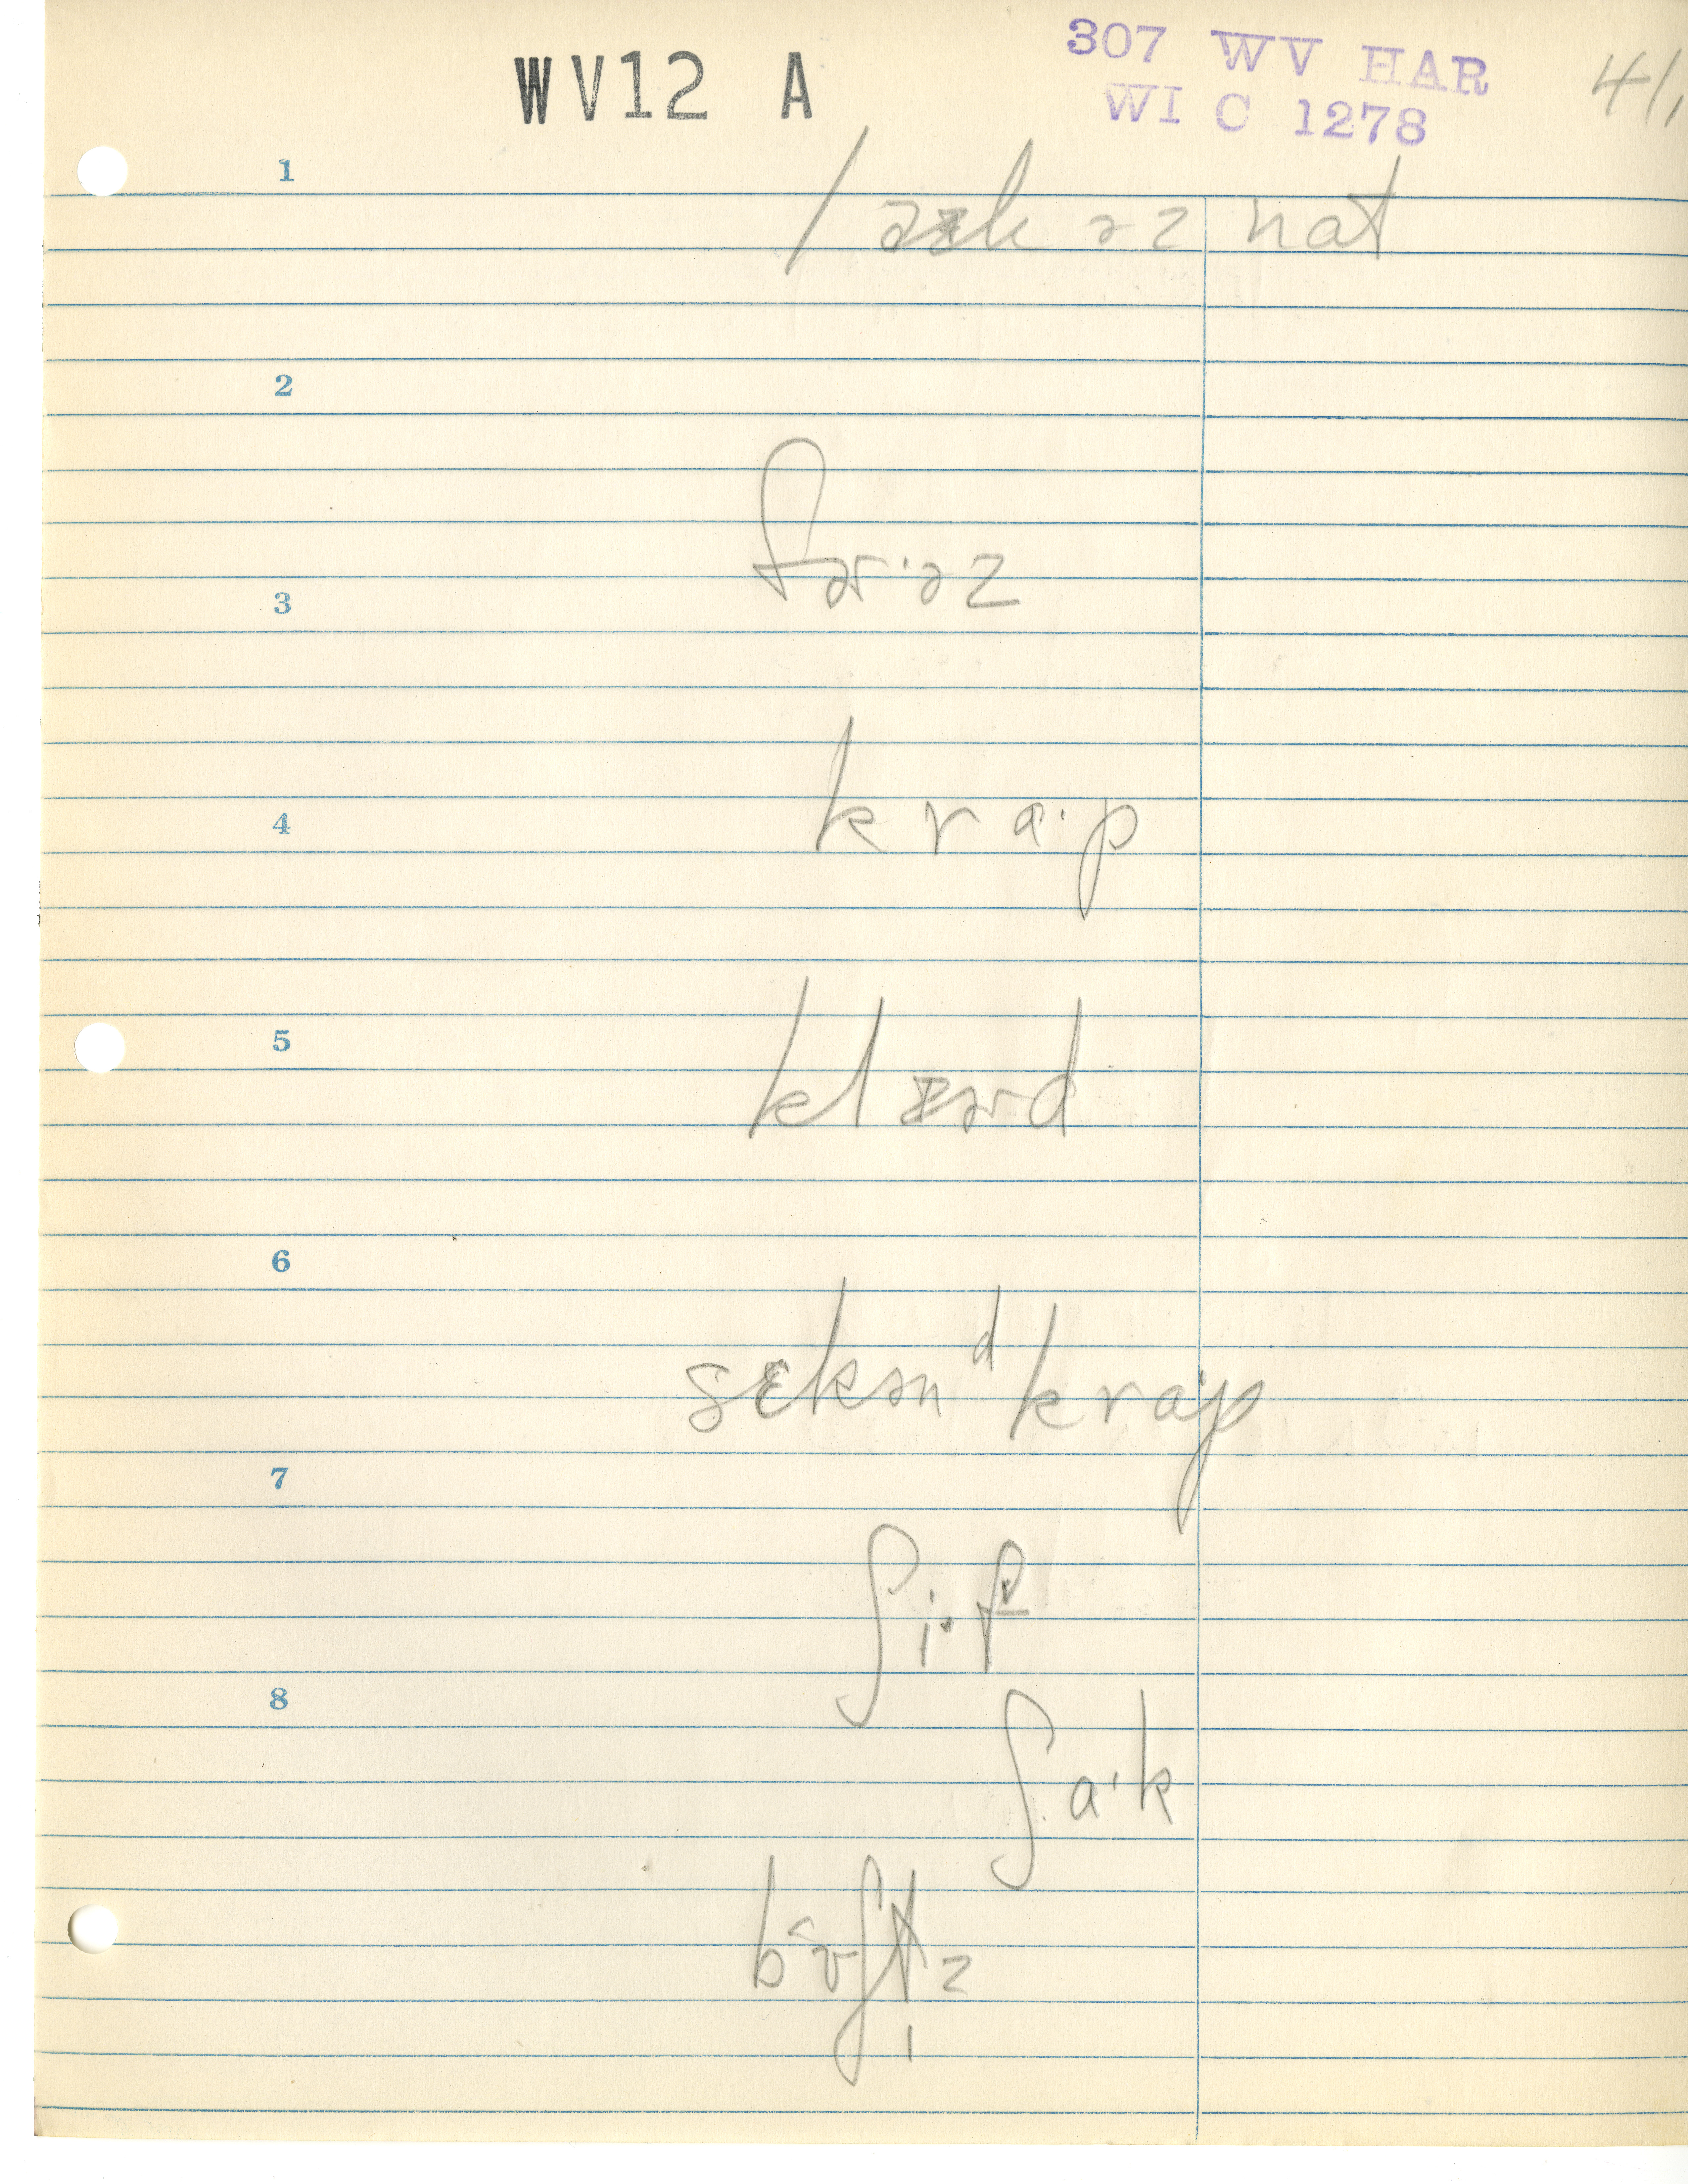 WV12 A
307 WV HAR
WI C 1278
41,
1
əz nat
2
fər·əz
3
kra·p
4
5
6
sɛkən ᵈ kra·p
7
ʃi·f
8
ʃa·k